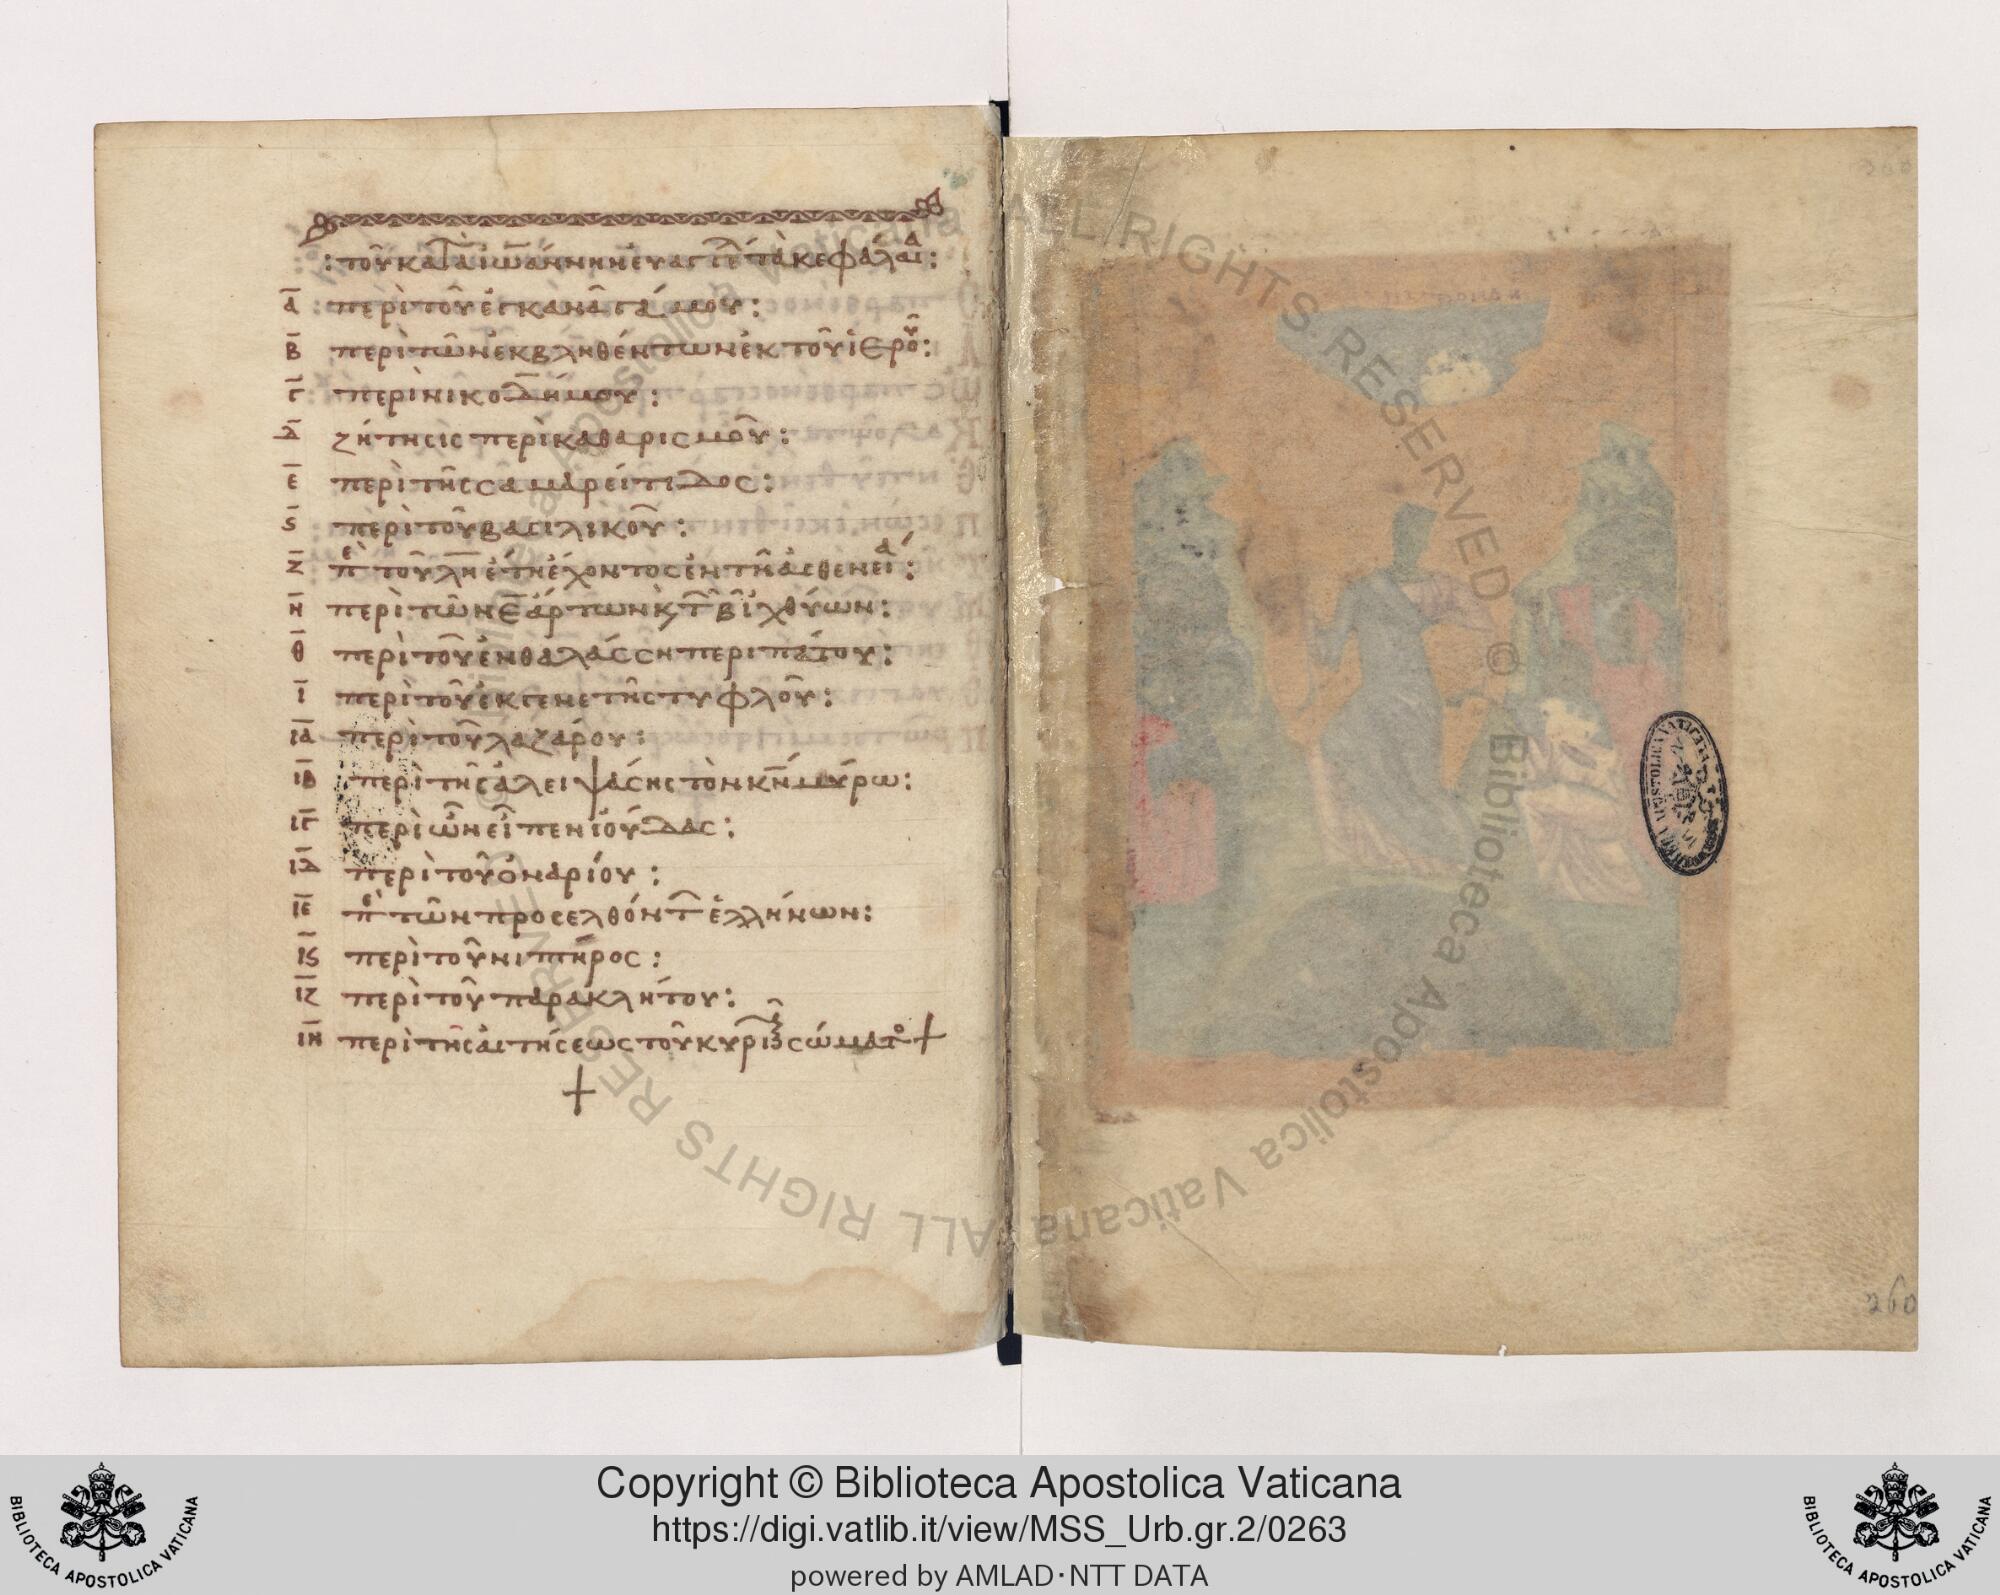 : τοῦ κατὰ ἰωάννην εὐαγγελ τὰ κεφάλαια :
α περὶ τοῦ ἐγ κανᾶ γάμου :
β περὶ τῶν ἐκβληθέντων ἐκ τοῦ ἱεροῦ :
γ περὶ νικοδήμου :
δ ζήτησις περὶ καθαρισμοῦ :
ε περὶ τῆς σαμαρείτιδος :
ς περὶ τοῦ βασιλικοῦ :
ζ πε τοῦ λη ἔτη ἔχοντος ἐν τῆ ἀσθενεία :
η περὶ τῶν ε ἄρτων κ τ β ἰχθύων :
θ περὶ τοῦ ἐν θαλάσση περιπάτου :
ι περὶ τοῦ ἐκ γενετῆς τυφλοῦ :
ια περὶ τοῦ λαζάρου :
ιβ περὶ τῆς ἀλειψάσης τὸν κν μύρω :
ιγ περὶ ὧν εἶπεν ἰούδας :
ιδ περὶ τοῦ ὀναρίου :
ιε πε τῶν προσελθόντ ἑλλήνων :
ις περὶ τοῦ νιπτῆρος :
ιζ περὶ τοῦ παρακλήτου :
ιη περὶ τῆς αἰτήσεως τοῦ κυρι σώματο +
+
260
Biblioteca Apostolica Vaticana
ALL RIGHTS RESERVED ©
Biblioteca Apostolica Vaticana
ALL RIGHTS RESERVED ©
BIBLIOTECA APOSTOLICA VATICANA
Copyright © Biblioteca Apostolica Vaticana
https://digi.vatlib.it/view/MSS_Urb.gr.2/0263
powered by AMLAD·NTT DATA
BIBLIOTECA APOSTOLICA VATICANA